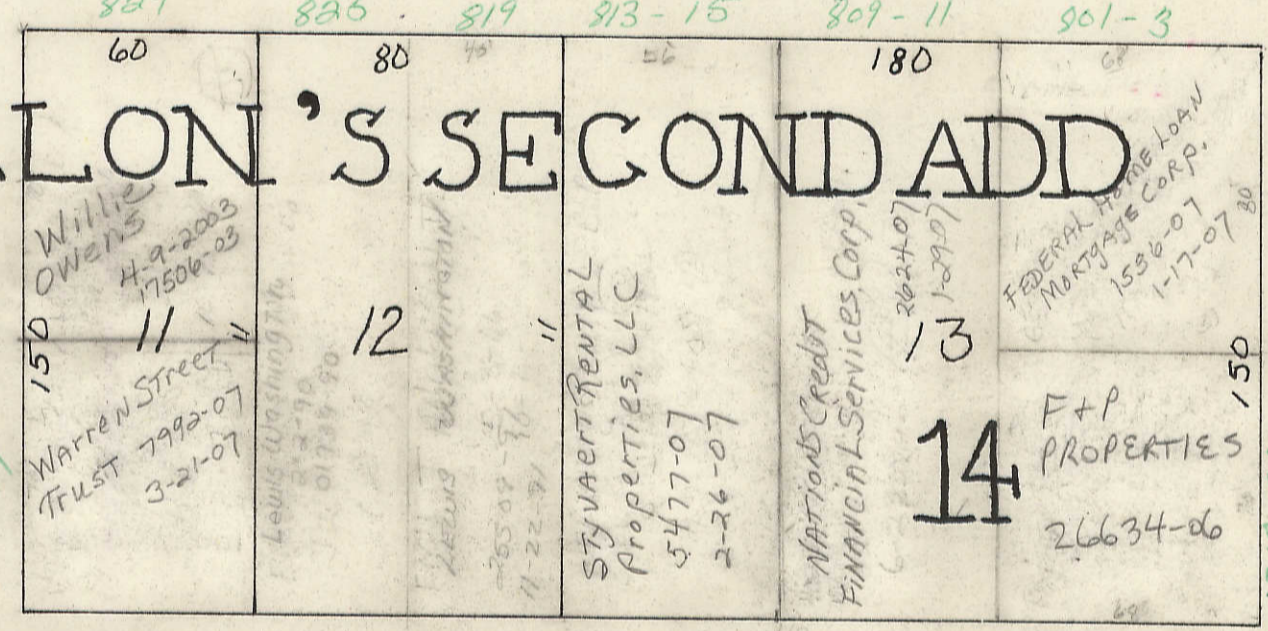 825 819 813-15 809-11 801-3
60 80 180
LON'S SECOND ADD
Willie
Owens
4-9-2003
17506-03
150
11
11
Warren Street
Trust 7992-07
3-21-07
12
11
Lewis Washington
01734-90
Lewis Washington
11-22-91
Styvaert Rental
Properties, LLC
5477-07
2-26-07
Nations Credit
Financial Services, Corp.
2624-07
1-29-07
13
14
FEDERAL HOME LOAN
MORTGAGE CORP.
1536-07
1-17-07
80
150
F+P
PROPERTIES
26634-06
68